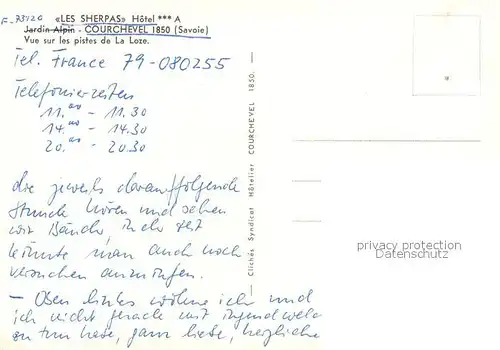 F-73120
«LES SHERPAS» Hôtel *** A
Jardin Alpin - COURCHEVEL 1850 (Savoie)
Vue sur les pistes de La Loze.
Tel. France 79-080255
Telefonierzeiten
11.00 - 11.30
14.00 - 14.30
20.00 - 20.30
die jeweils darauffolgende
Stunde hören und sehen
wir Bänder, in der Zeit
könnte man auch noch
versuchen anzurufen.
- Oben links wohne ich und
ich nicht gerade mit irgendwelch
zu tun habe, ganz liebe, herzliche
Clichés Syndicat Hôtelier COURCHEVEL 1850.
privacy protection
Datenschutz